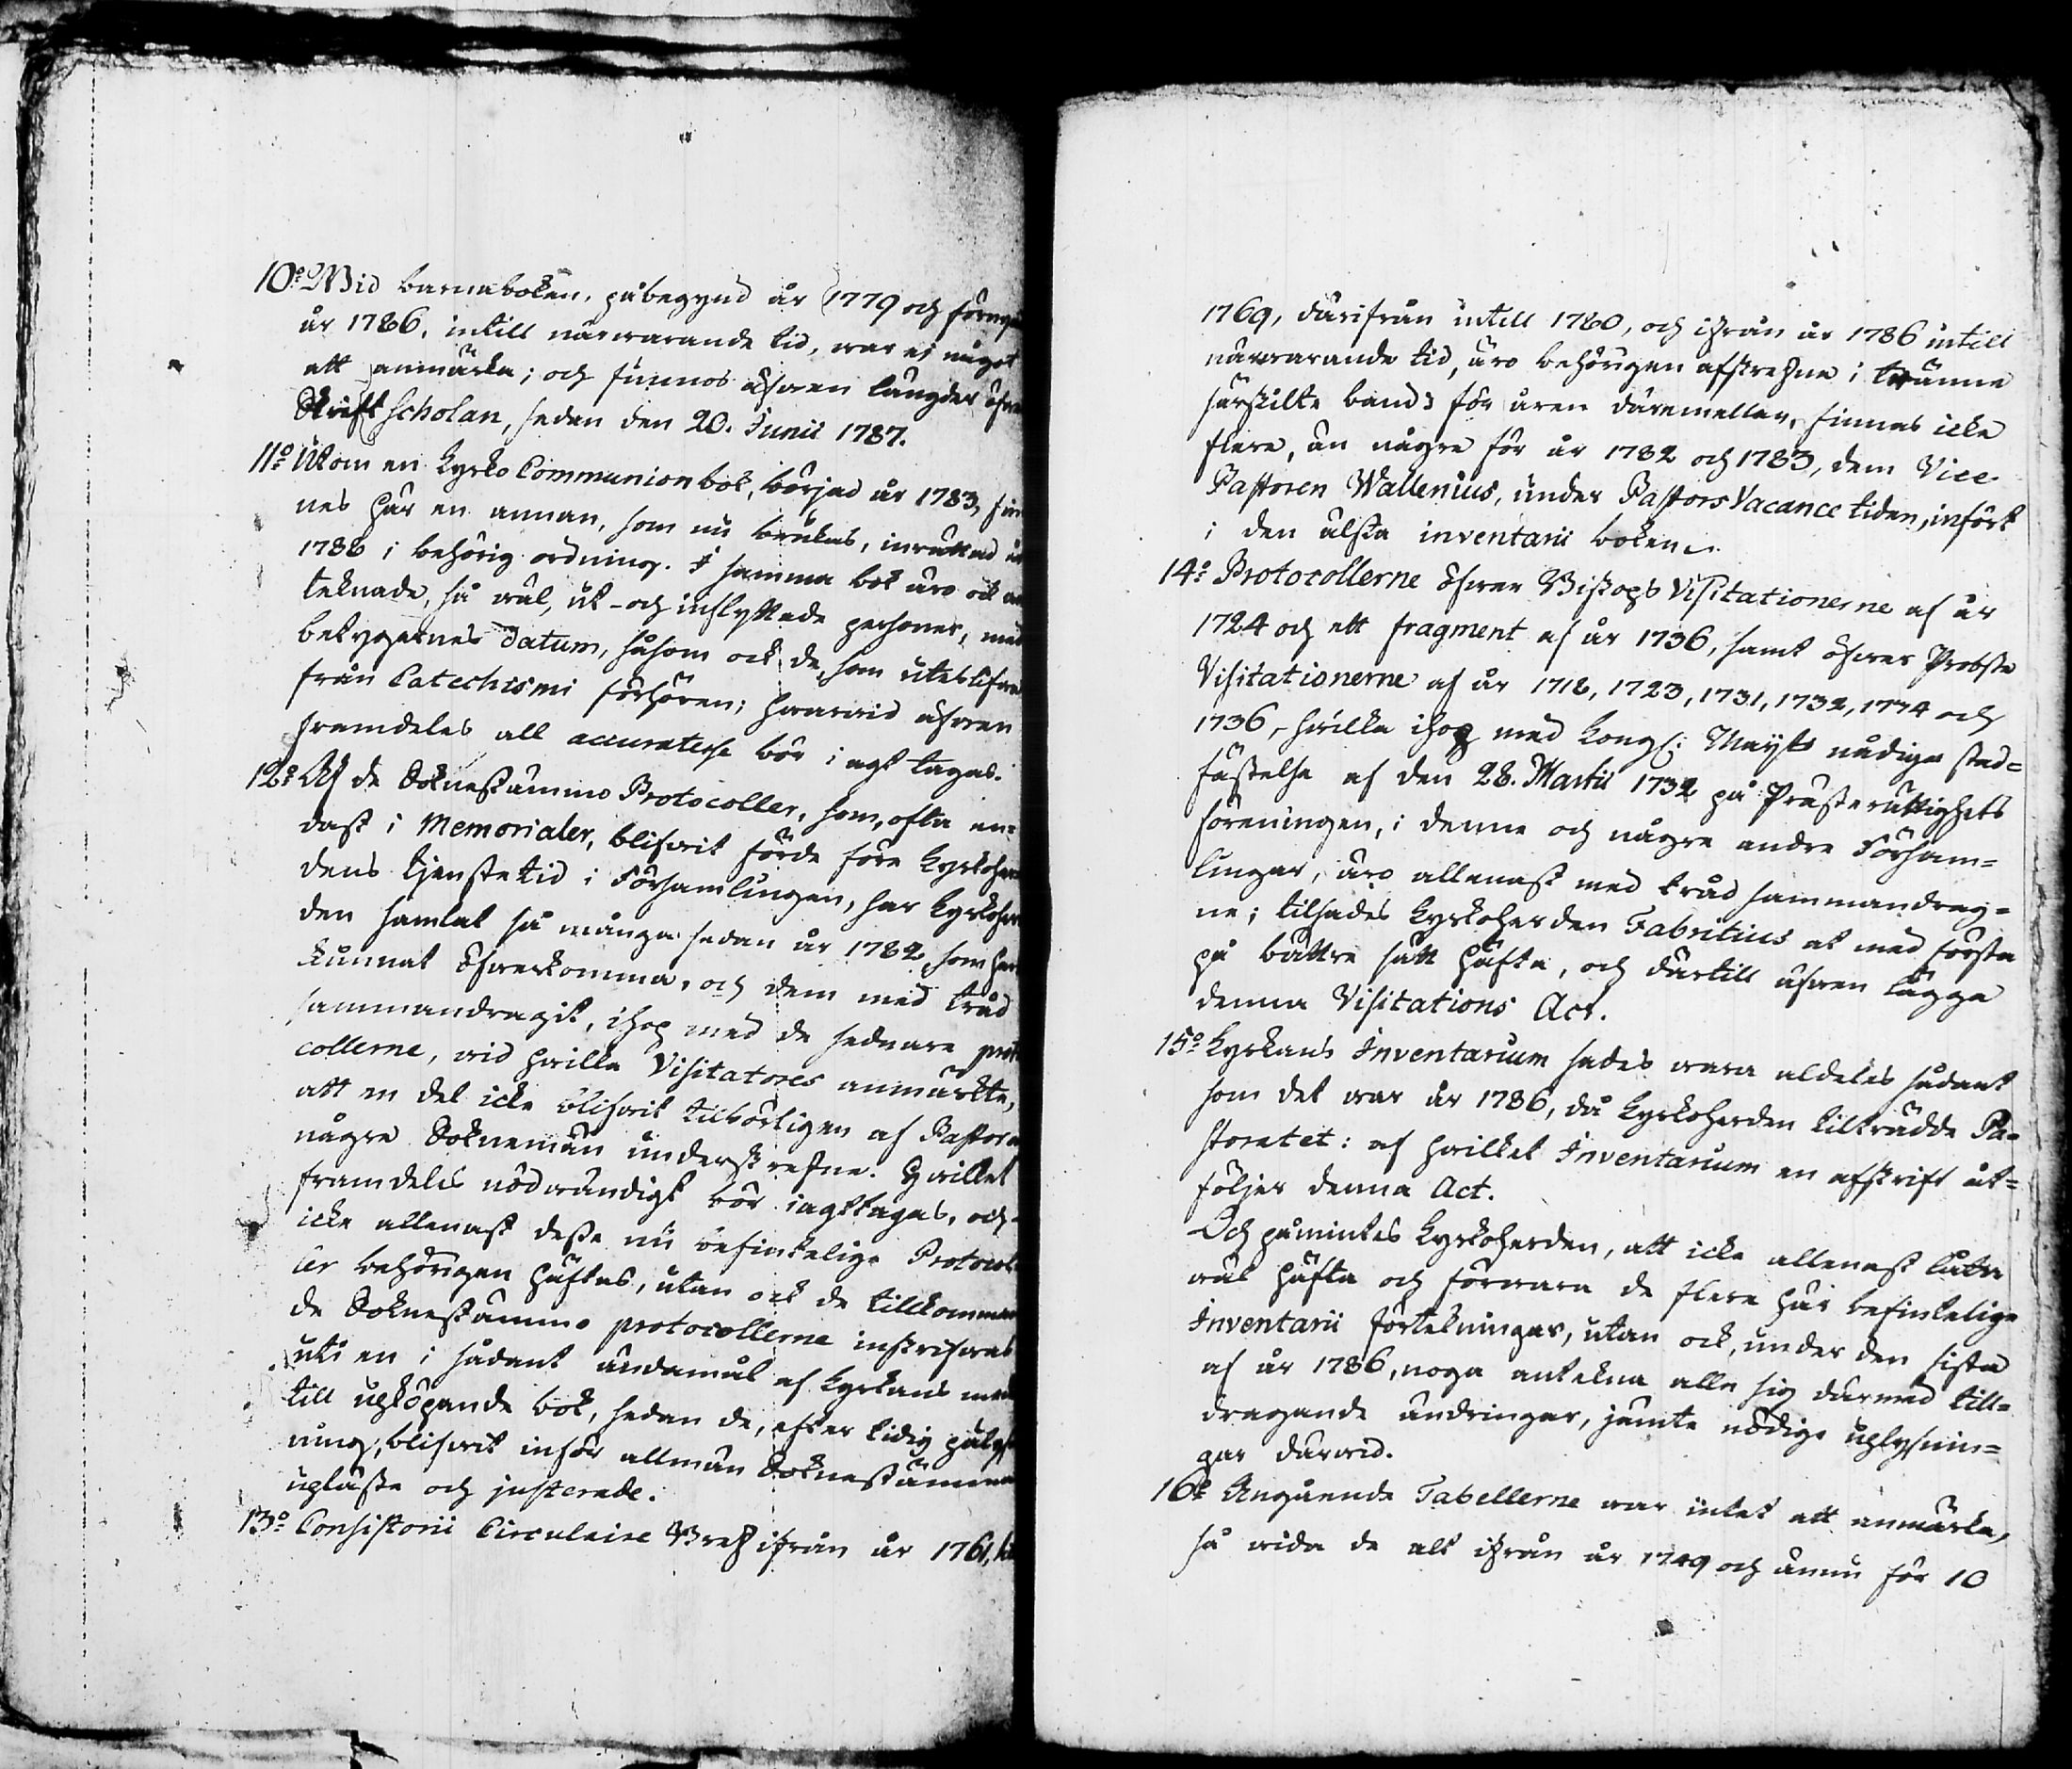 10:o Wid barnaboken, påbegynd år 1779 och förnyad
år 1786, intill närwarande tid, war ej något
att anmärka; och funnos äfwen längder öfwer
Skriftscholan, sedan den 20. Junii 1787.
11:o Utom en Kyrko Communion bok, börjad år 1783, fin
nes här en annan, som nu brukas, inrättad år
1786 i behörig ordning. I samma bok äro ock an
teknade, så wäl, ut- och inflyttade personer, med
betygernes Datum, såsom ock de, som uteblifwa
från Catechismi förhören; hwarwid äfwen
framdeles all accuratesse bör i agt tagas.
12:o Af de Soknestämmo Protocoller, som, ofta en=
dast i Memorialer, blifwit förde före Kyrkoher
dens tjenstetid i Församlingen, har Kyrkoher
den samlat så många sedan år 1782, som han
kunnat öfwerkomma, och dem med tråd
sammandragit, ihop med de sednare proto
collerne, wid hwilka Visitatores anmärkte,
att en del icke blifwit tilbörligen af Pastor och
några Soknemän underskrefne. Hwilket
framdeles nödwändigt bör iagttagas, och
icke allenast desse nu befintelige Protocol
ler behörigen häftas, utan ock de tillkomman
de Soknestämmo protocollerne inskrifwas
uti en i sådant ändamål af Kyrkans medel
till upköpande bok, sedan de, efter tidig pålys
ning, blifwit inför allmän Soknestämma
upläste och justerade.
13:o Consistorii Circulaire Bref ifrån år 1761, til
1769, därifrån intill 1780, och ifrån år 1786 intill
närwarande tid, äro behörigen afskrefne i tränne
särskilte band; för åren däremellan, finnas icke
flere, än någre för år 1782 och 1783, dem Vice
Pastoren Wallenius, under Pastors Vacance tiden, infört
i den älsta inventarii boken.
14:o Protocollerne öfwer Biskops Visitationerne af år
1724 och ett fragment af år 1736, samt öfwer Probste
Visitationerne af år 1718, 1723, 1731, 1732, 1774 och
1736, hwilka ihop med Kongl: Mayts nådiga stad=
fästelse af den 28. Martii 1732 på Prästerättighets
föreningen, i denne och någre andre Försam=
lingar, äro allenast med tråd sammandrag=
ne; tilsades Kyrkoherden Fabritius at med första
på bättre sätt häfta, och därtill äfwen lägga
denna Visitations Act.
15:o Kyrkans Inventarium sades wara aldeles sådant
som det war år 1786, då Kyrkoherden tilträdde Pa=
storatet: af hwilket Inventarium en afskrift åt=
följer denna Act.
Och påmintes Kyrkoherden, att icke allenast låta
wäl häfta och förwara de flere här befintelige
Inventarii förtekningar, utan ock, under den sista
af år 1786, noga antekna alla sig därmed till=
dragande ändringar, jämte nödige uplysnin=
gar därwid.
16:o Angående Tabellerne war intet att anmärka,
så wida de alt ifrån år 1749 och ännu för 10